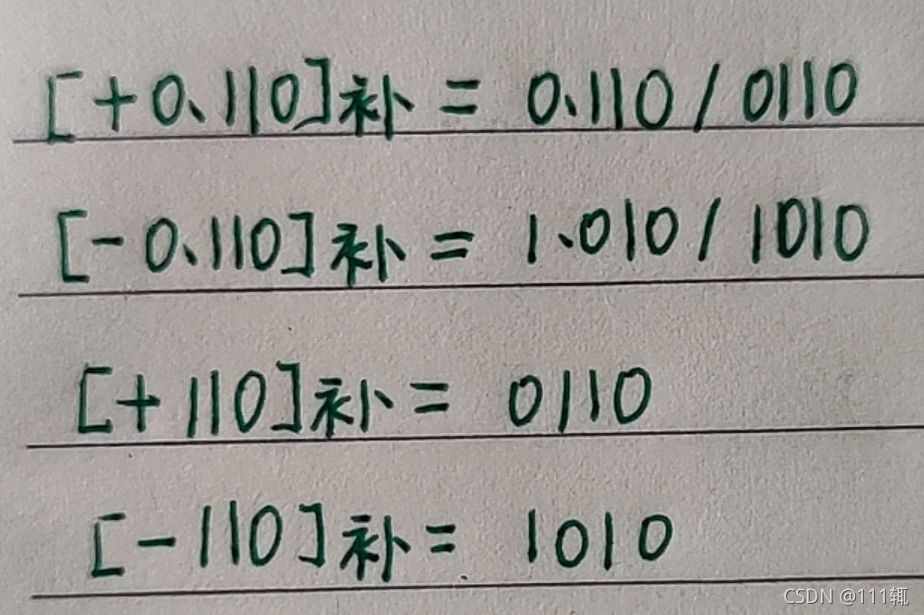 [+0.110]补 = 0.110 / 0110
[-0.110]补 = 1.010 / 1010
[+110]补 = 0110
[-110]补 = 1010
CSDN @111辄